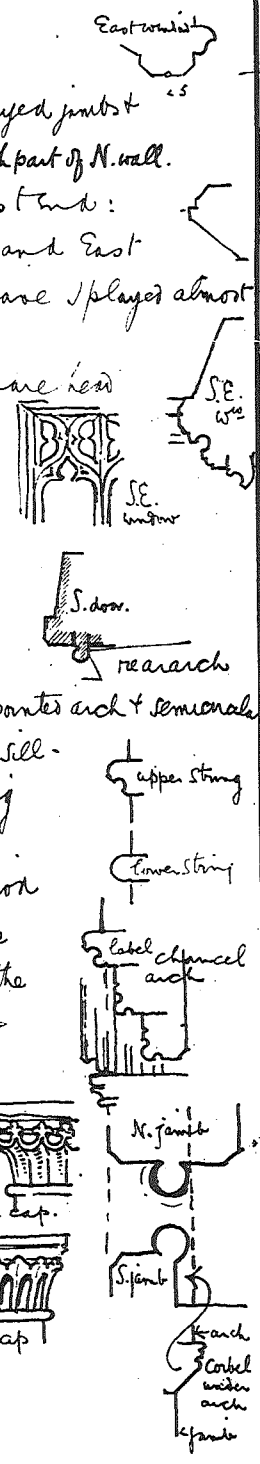 East window
< 5
yed jambs &
h part of N. wall.
st End :
and East
ave splayed almost
are head
S.E.
wdo
S.E.
window
S. door.
reararch
ointed arch & semicircular
sill -
upper string
g
lower string
od
e
label chancel
arch
the
N. jamb
cap.
S. jamb
arch
Corbel
under
arch
ap
jamb